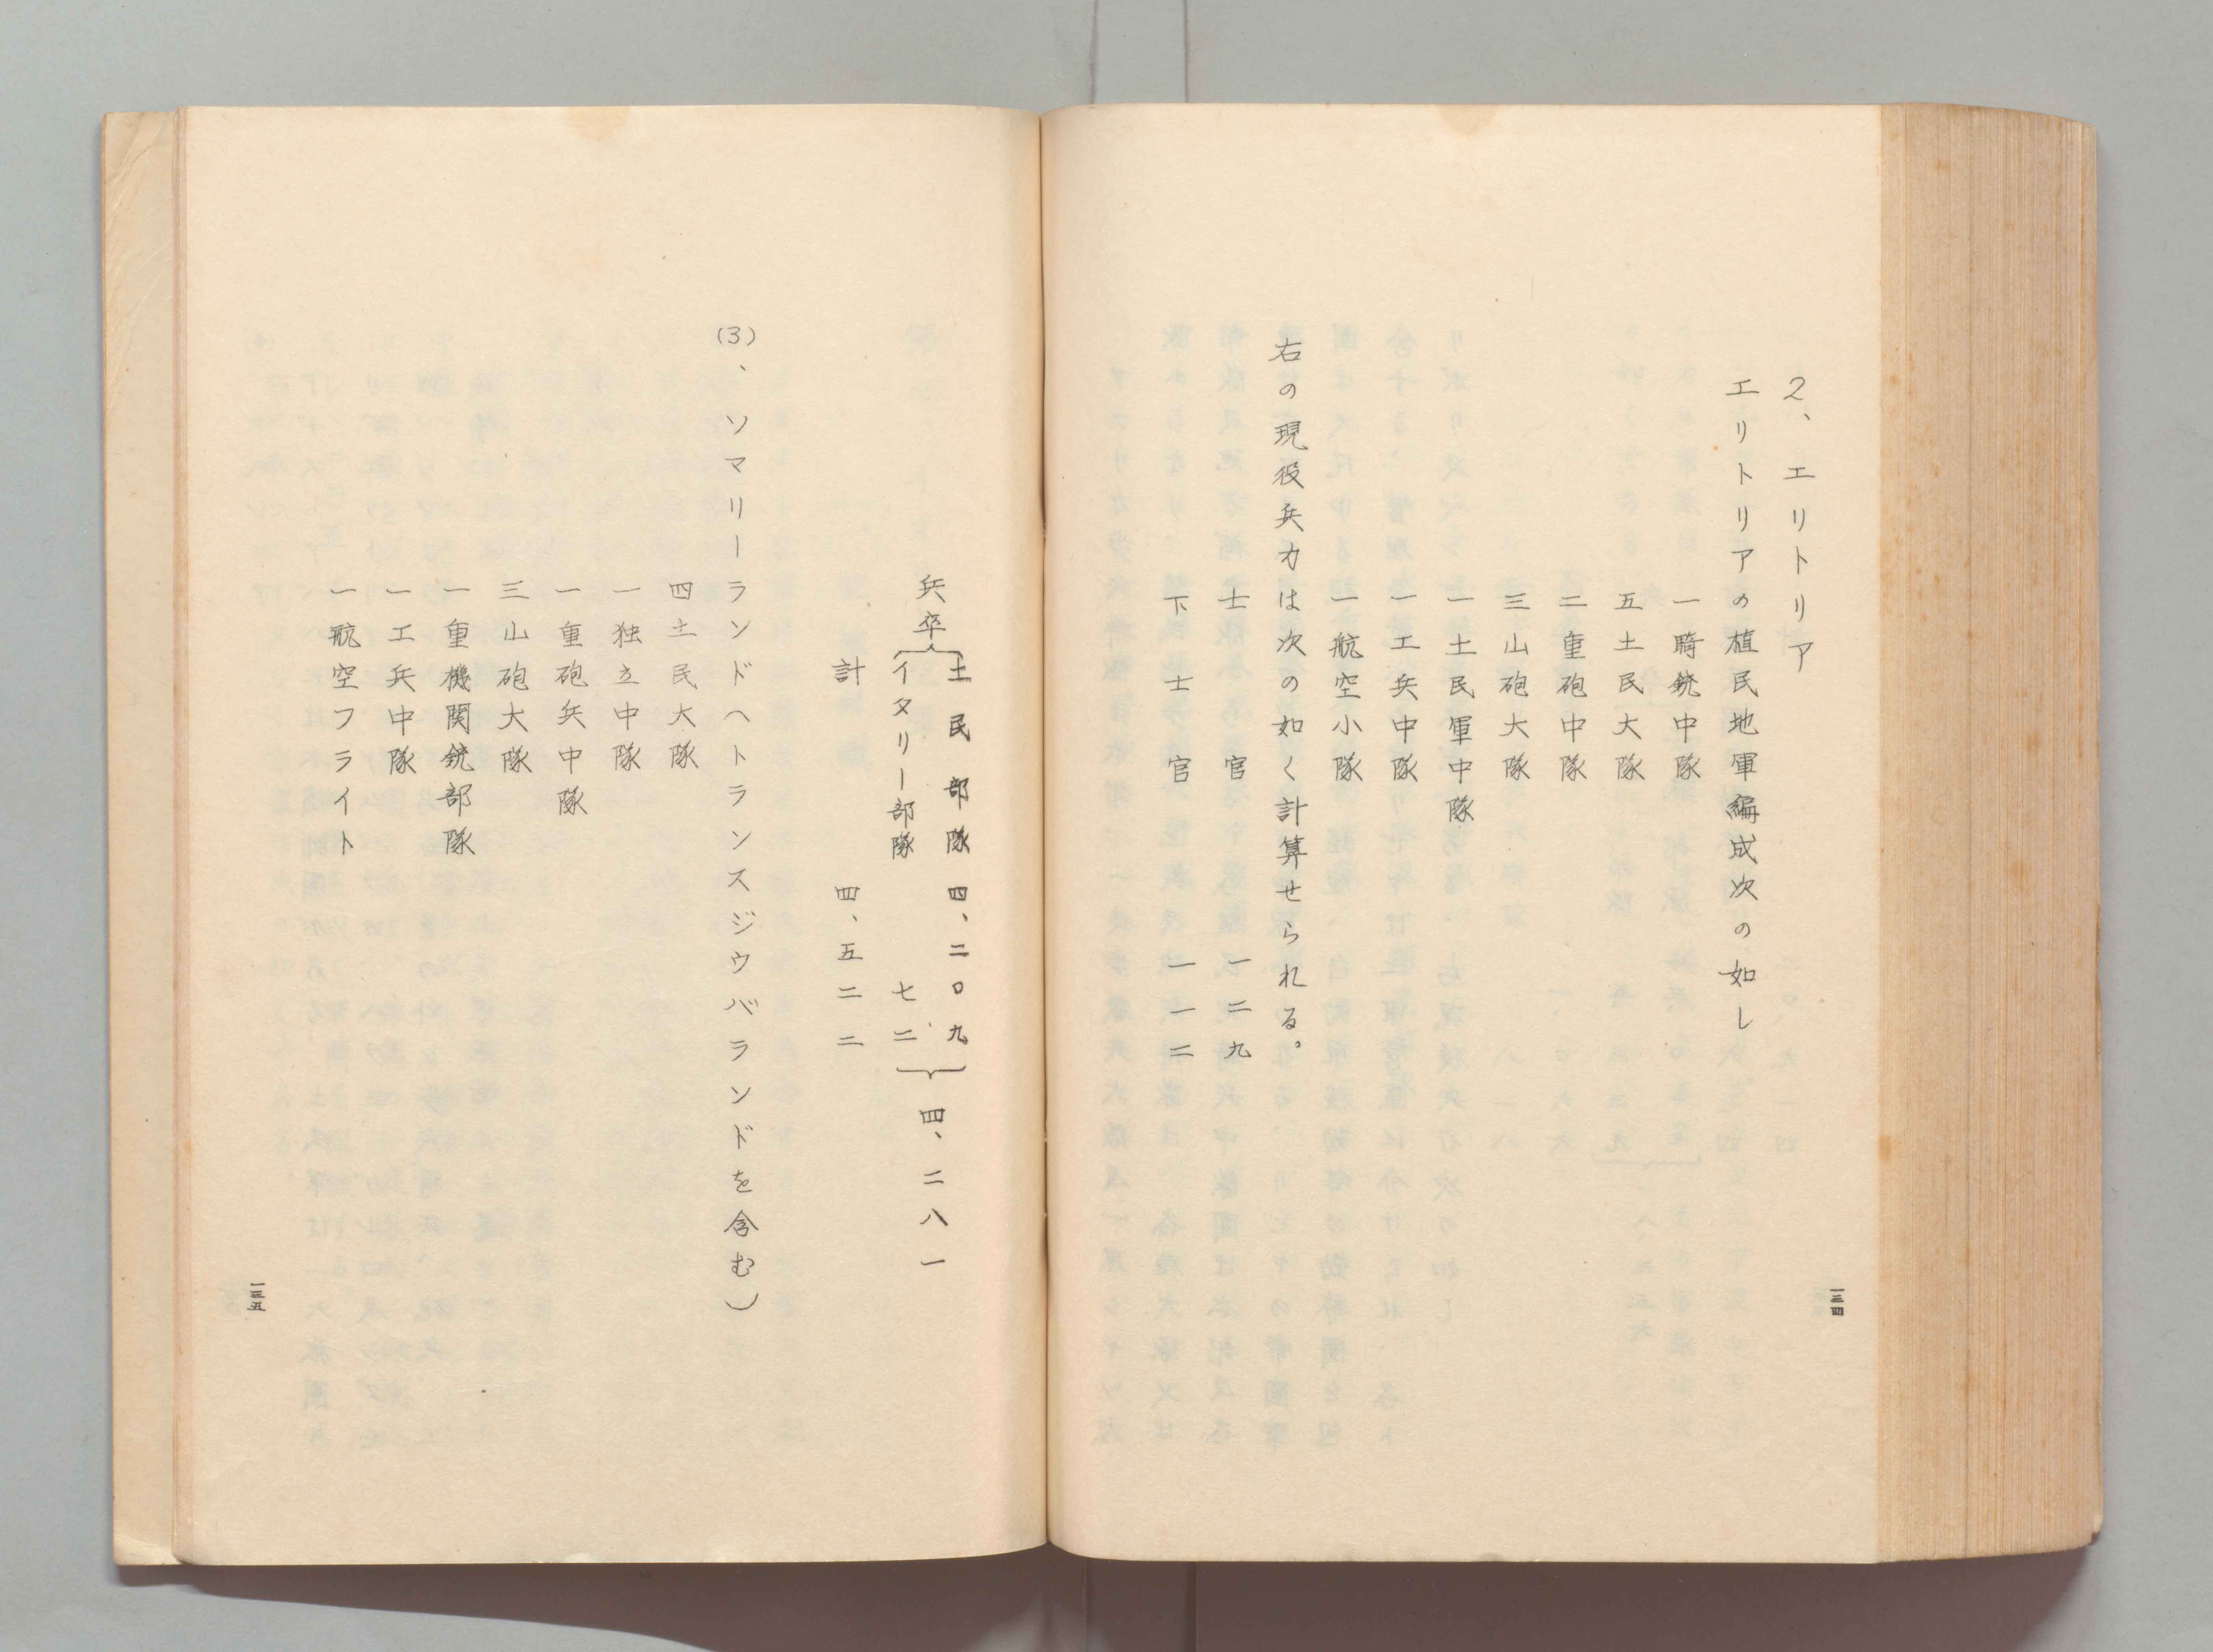 2、エリトリア
エリトリアの植民地軍編成次の如し
一騎銃中隊
五土民大隊
二重砲中隊
三山砲大隊
一土民軍中隊
一工兵中隊
一航空小隊
右の現役兵力は次の如く計算せられる。
士官 一二九
下士官 一一二
一三四
兵卒
土民部隊 四、二〇九
イタリー部隊 七二
四、二八一
計 四、五二二
(3)、ソマリーランドヘトランスジウバランドを含む)
四土民大隊
一独立中隊
一重砲兵中隊
三山砲大隊
一重機関銃部隊
一工兵中隊
一航空フライト
一三五